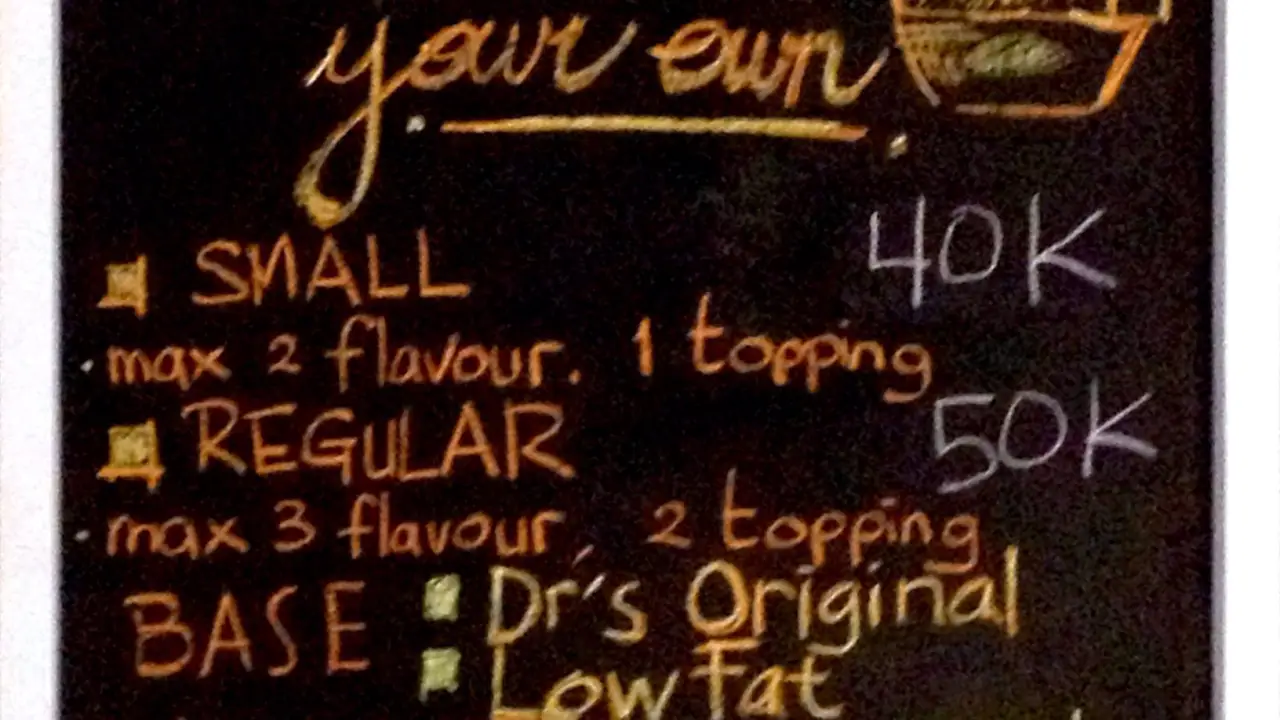 your own
SMALL 40K
· max 2 flavour. 1 topping
REGULAR 50K
· max 3 flavour, 2 topping
BASE Dr's Original
Low Fat